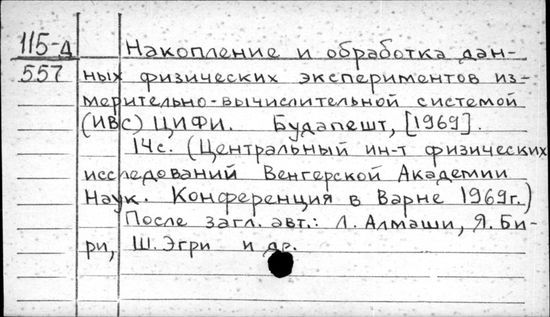 115-д
557
Накопление и обработка дан-
ных физических экспериментов из-
мерительно-вычислительной системой
(ИВС) ЦИФИ. Будапешт, [1969].
14с. (Центральный ин-т физических
исследований Венгерской Академии
Наук. Конференция в Варне 1969г.)
После загл. авт.: Л. Алмаши, Я. Би-
ри, Ш. Эгри и др.